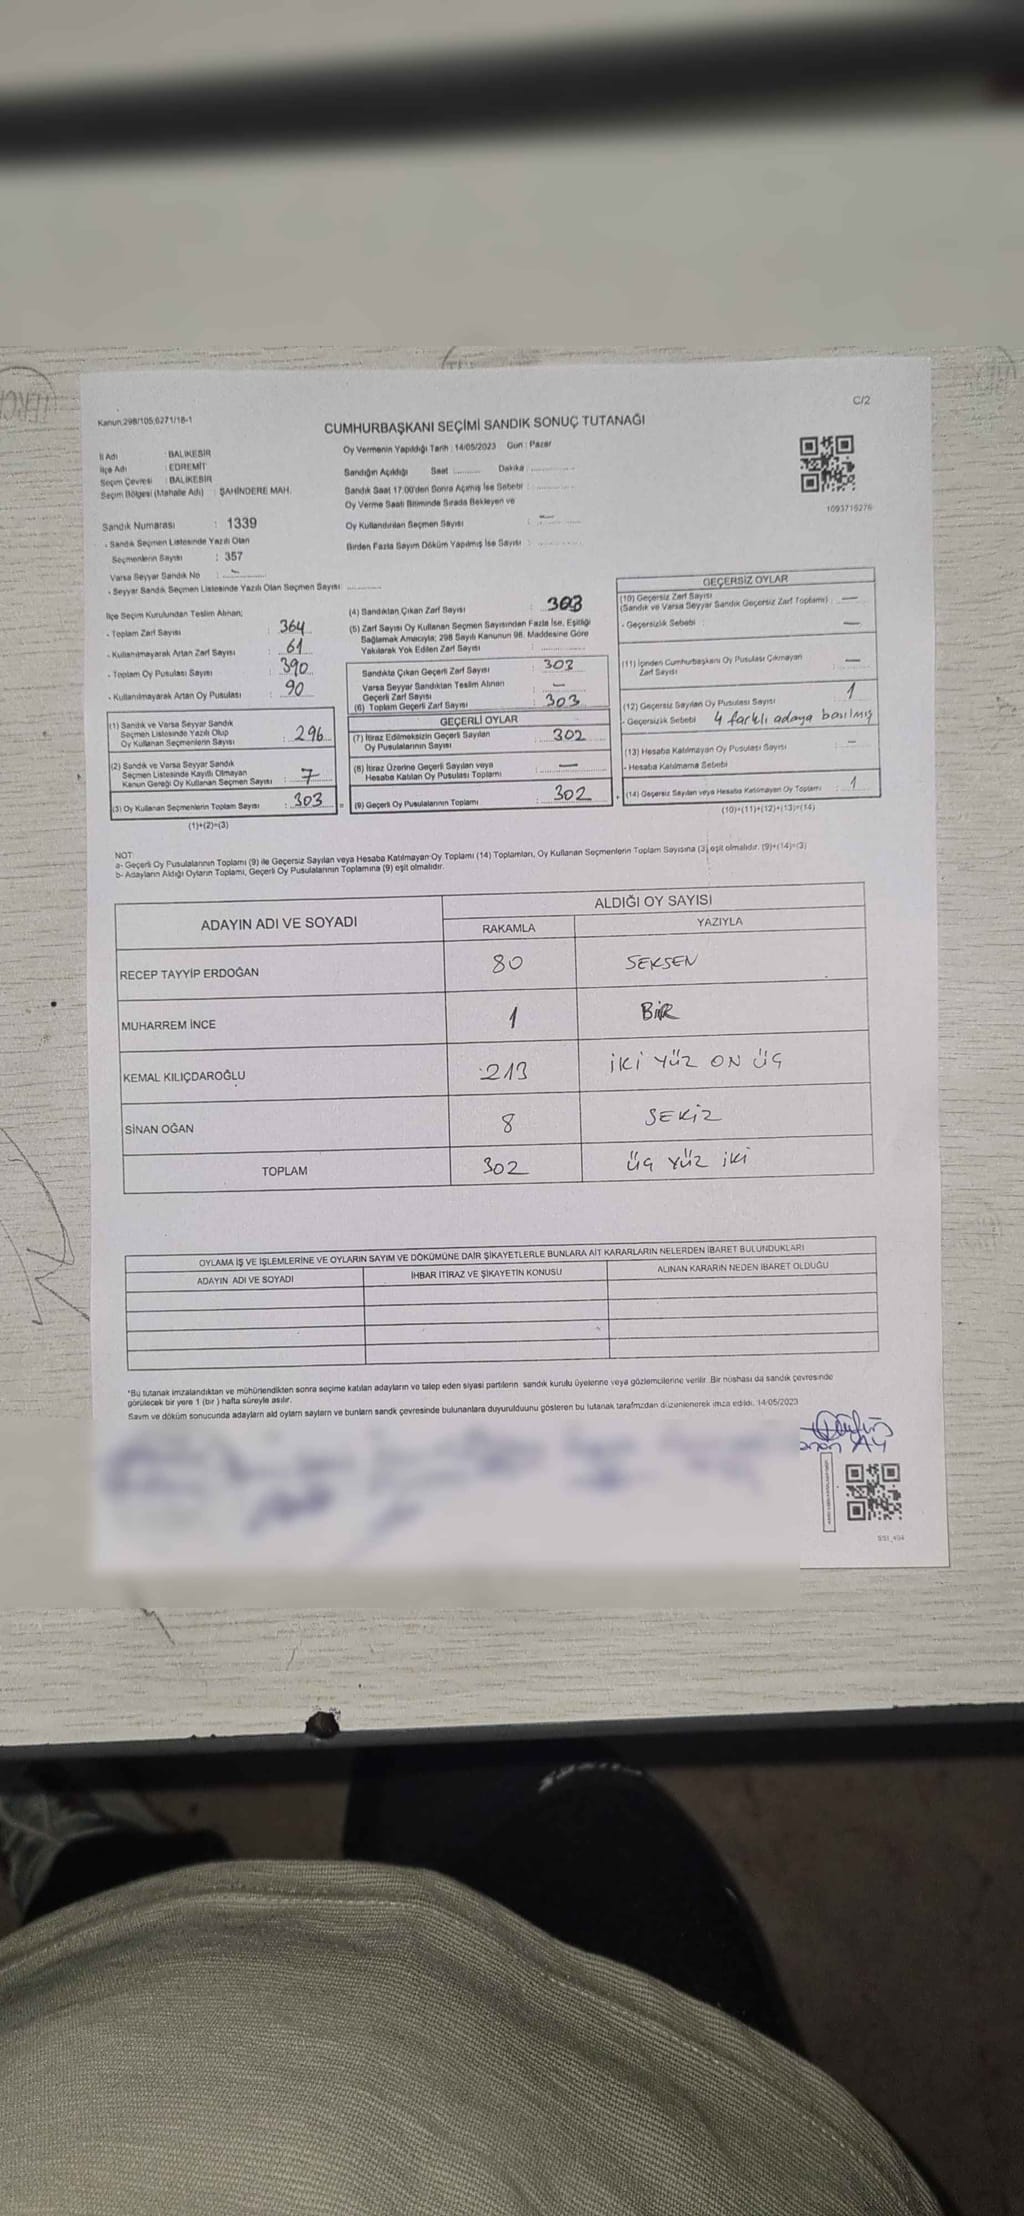 Kanun:298/105;6271/18-1
C/2
CUMHURBAŞKANI SEÇİMİ SANDIK SONUÇ TUTANAĞI
Oy Vermenin Yapıldığı Tarih : 14/05/2023 Gün : Pazar
İl Adı : BALIKESİR
İlçe Adı : EDREMİT
Seçim Çevresi : BALIKESİR
Seçim Bölgesi (Mahalle Adı) : ŞAHİNDERE MAH.
Sandığın Açıldığı Saat ......... Dakika ............
Sandık Saat 17:00'den Sonra Açılmış İse Sebebi : ............
Oy Verme Saati Bitiminde Sırada Bekleyen ve
Oy Kullandırılan Seçmen Sayısı : —
Birden Fazla Sayım Döküm Yapılmış İse Sayısı : ............
1093715276
Sandık Numarası : 1339
- Sandık Seçmen Listesinde Yazılı Olan
Seçmenlerin Sayısı : 357
Varsa Seyyar Sandık No : —
- Seyyar Sandık Seçmen Listesinde Yazılı Olan Seçmen Sayısı ............
İlçe Seçim Kurulundan Teslim Alınan;
- Toplam Zarf Sayısı : 364
- Kullanılmayarak Artan Zarf Sayısı : 61
- Toplam Oy Pusulası Sayısı : 390
- Kullanılmayarak Artan Oy Pusulası : 90
(1) Sandık ve Varsa Seyyar Sandık
Seçmen Listesinde Yazılı Olup
Oy Kullanan Seçmenlerin Sayısı : 296
(2) Sandık ve Varsa Seyyar Sandık
Seçmen Listesinde Kayıtlı Olmayan
Kanun Gereği Oy Kullanan Seçmen Sayısı : 7
(3) Oy Kullanan Seçmenlerin Toplam Sayısı : 303
(1)+(2)=(3)
(4) Sandıktan Çıkan Zarf Sayısı : 303
(5) Zarf Sayısı Oy Kullanan Seçmen Sayısından Fazla İse, Eşitliği
Sağlamak Amacıyla; 298 Sayılı Kanunun 98. Maddesine Göre
Yakılarak Yok Edilen Zarf Sayısı : ............
Sandıkta Çıkan Geçerli Zarf Sayısı : 303
Varsa Seyyar Sandıktan Teslim Alınan
Geçerli Zarf Sayısı : —
(6) Toplam Geçerli Zarf Sayısı : 303
GEÇERLİ OYLAR
(7) İtiraz Edilmeksizin Geçerli Sayılan
Oy Pusulalarının Sayısı : 302
(8) İtiraz Üzerine Geçerli Sayılan veya
Hesaba Katılan Oy Pusulası Toplamı : —
(9) Geçerli Oy Pusulalarının Toplamı : 302
GEÇERSİZ OYLAR
(10) Geçersiz Zarf Sayısı
(Sandık ve Varsa Seyyar Sandık Geçersiz Zarf Toplamı) : —
- Geçersizlik Sebebi : —
(11) İçinden Cumhurbaşkanı Oy Pusulası Çıkmayan
Zarf Sayısı : —
(12) Geçersiz Sayılan Oy Pusulası Sayısı : 1
- Geçersizlik Sebebi 4 farklı adaya basılmış
(13) Hesaba Katılmayan Oy Pusulası Sayısı : —
- Hesaba Katılmama Sebebi
(14) Geçersiz Sayılan veya Hesaba Katılmayan Oy Toplamı : 1
(10)+(11)+(12)+(13)=(14)
NOT:
a- Geçerli Oy Pusulalarının Toplamı (9) ile Geçersiz Sayılan veya Hesaba Katılmayan Oy Toplamı (14) Toplamları, Oy Kullanan Seçmenlerin Toplam Sayısına (3) eşit olmalıdır. (9)+(14)=(3)
b- Adayların Aldığı Oyların Toplamı, Geçerli Oy Pusulalarının Toplamına (9) eşit olmalıdır.
ADAYIN ADI VE SOYADI
ALDIĞI OY SAYISI
RAKAMLA YAZIYLA
RECEP TAYYİP ERDOĞAN 80 SEKSEN
MUHARREM İNCE 1 BİR
KEMAL KILIÇDAROĞLU 213 İKİ YÜZ ON ÜÇ
SİNAN OĞAN 8 SEKİZ
TOPLAM 302 ÜÇ YÜZ İKİ
OYLAMA İŞ VE İŞLEMLERİNE VE OYLARIN SAYIM VE DÖKÜMÜNE DAİR ŞİKAYETLERLE BUNLARA AİT KARARLARIN NELERDEN İBARET BULUNDUKLARI
ADAYIN ADI VE SOYADI İHBAR İTİRAZ VE ŞİKAYETİN KONUSU ALINAN KARARIN NEDEN İBARET OLDUĞU
*Bu tutanak imzalandıktan ve mühürlendikten sonra seçime katılan adayların ve talep eden siyasi partilerin sandık kurulu üyelerine veya gözlemcilerine verilir. Bir nüshası da sandık çevresinde
görülecek bir yere 1 (bir ) hafta süreyle asılır.
Sayım ve döküm sonucunda adayların aldı oyların sayıları ve bunların sandık çevresinde bulunanlara duyurulduunu gösteren bu tutanak tarafımızdan düzenlenerek imza edildi. 14/05/2023